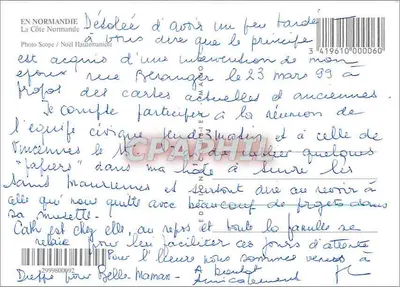 EN NORMANDIE
La Côte Normande
Photo Scope / Noël Hautemanière
Désolée d'avoir un peu tardé
à vous dire que le principe
est acquis d'une intervention de mon
époux rue Béranger le 23 mars 99 à
propos des cartes actuelles et anciennes.
Je compte participer à la réunion de
l'équipe civique jeudi matin et à celle de
Vincennes le
quelques
"papiers" dans ma hâte à suivre les
et surtout dire au revoir à
celle qui nous quitte avec beaucoup de projets dans
sa musette.
est chez elle, au repos et toute la famille se
relaie pour leur faciliter ces jours d'attente
Pour l'heure nous sommes venus à
Dieppe pour Belle-Maman.
A bientôt
Amicalement
3 419610 000060
2999800692
CPARHIL